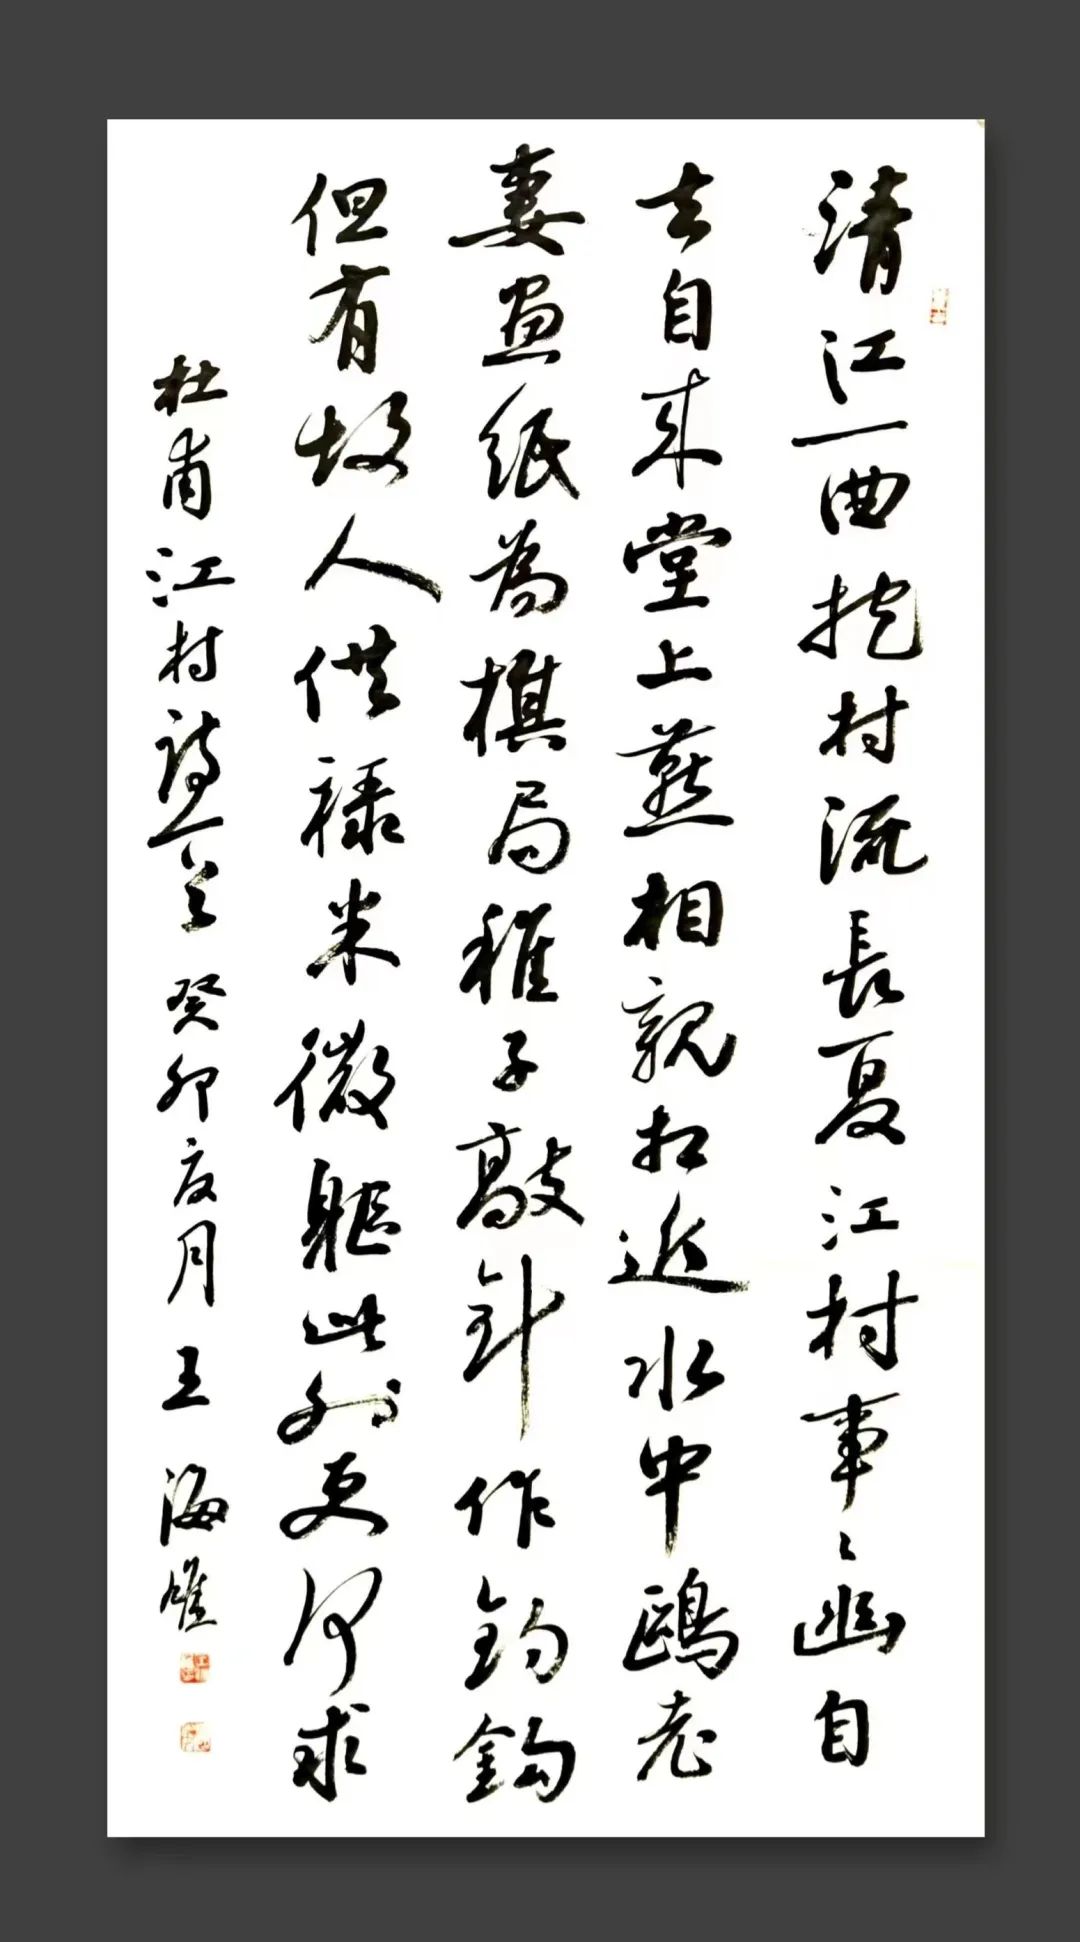 清江一曲抱村流長夏江村事〻幽自
去自来堂上燕相親相近水中鷗老
妻畫紙為棋局稚子敲針作釣鈎
但有故人供禄米微軀此外更何求
杜甫江村詩一首 癸卯夏月 王海雄